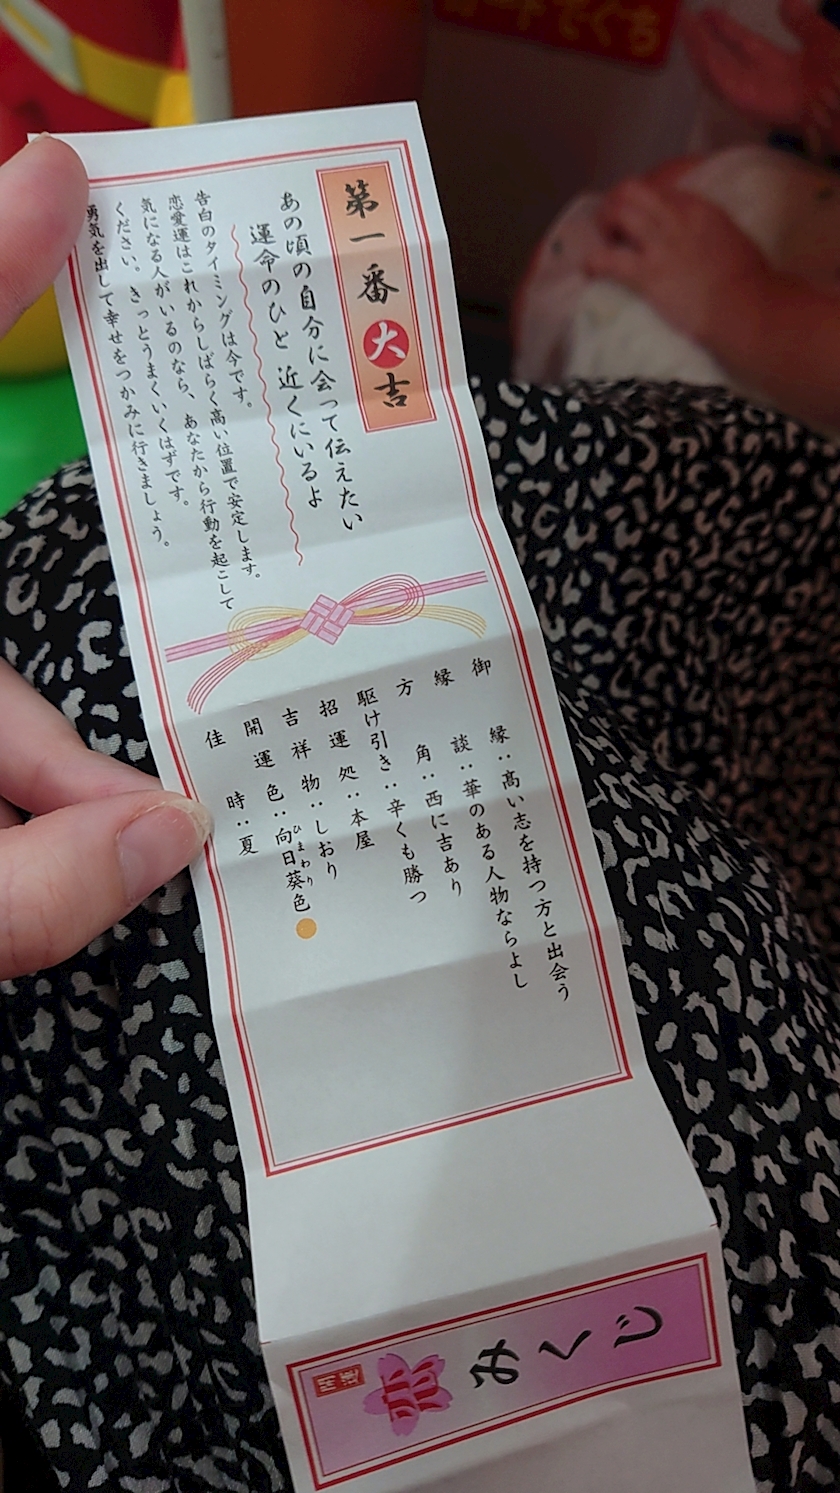 第一番 大吉
あの頃の自分に会って伝えたい
運命のひと 近くにいるよ
告白のタイミングは今です。
恋愛運はこれからしばらく高い位置で安定します。
気になる人がいるのなら、あなたから行動を起こして
ください。きっとうまくいくはずです。
勇気を出して幸せをつかみに行きましょう。
御縁：高い志を持つ方と出会う
縁談：華のある人物ならよし
方角：西に吉あり
駆け引き：辛くも勝つ
招運処：本屋
吉祥物：しおり
開運色：向日葵色
ひまわり
佳時：夏
みくじ
開運
でぐち